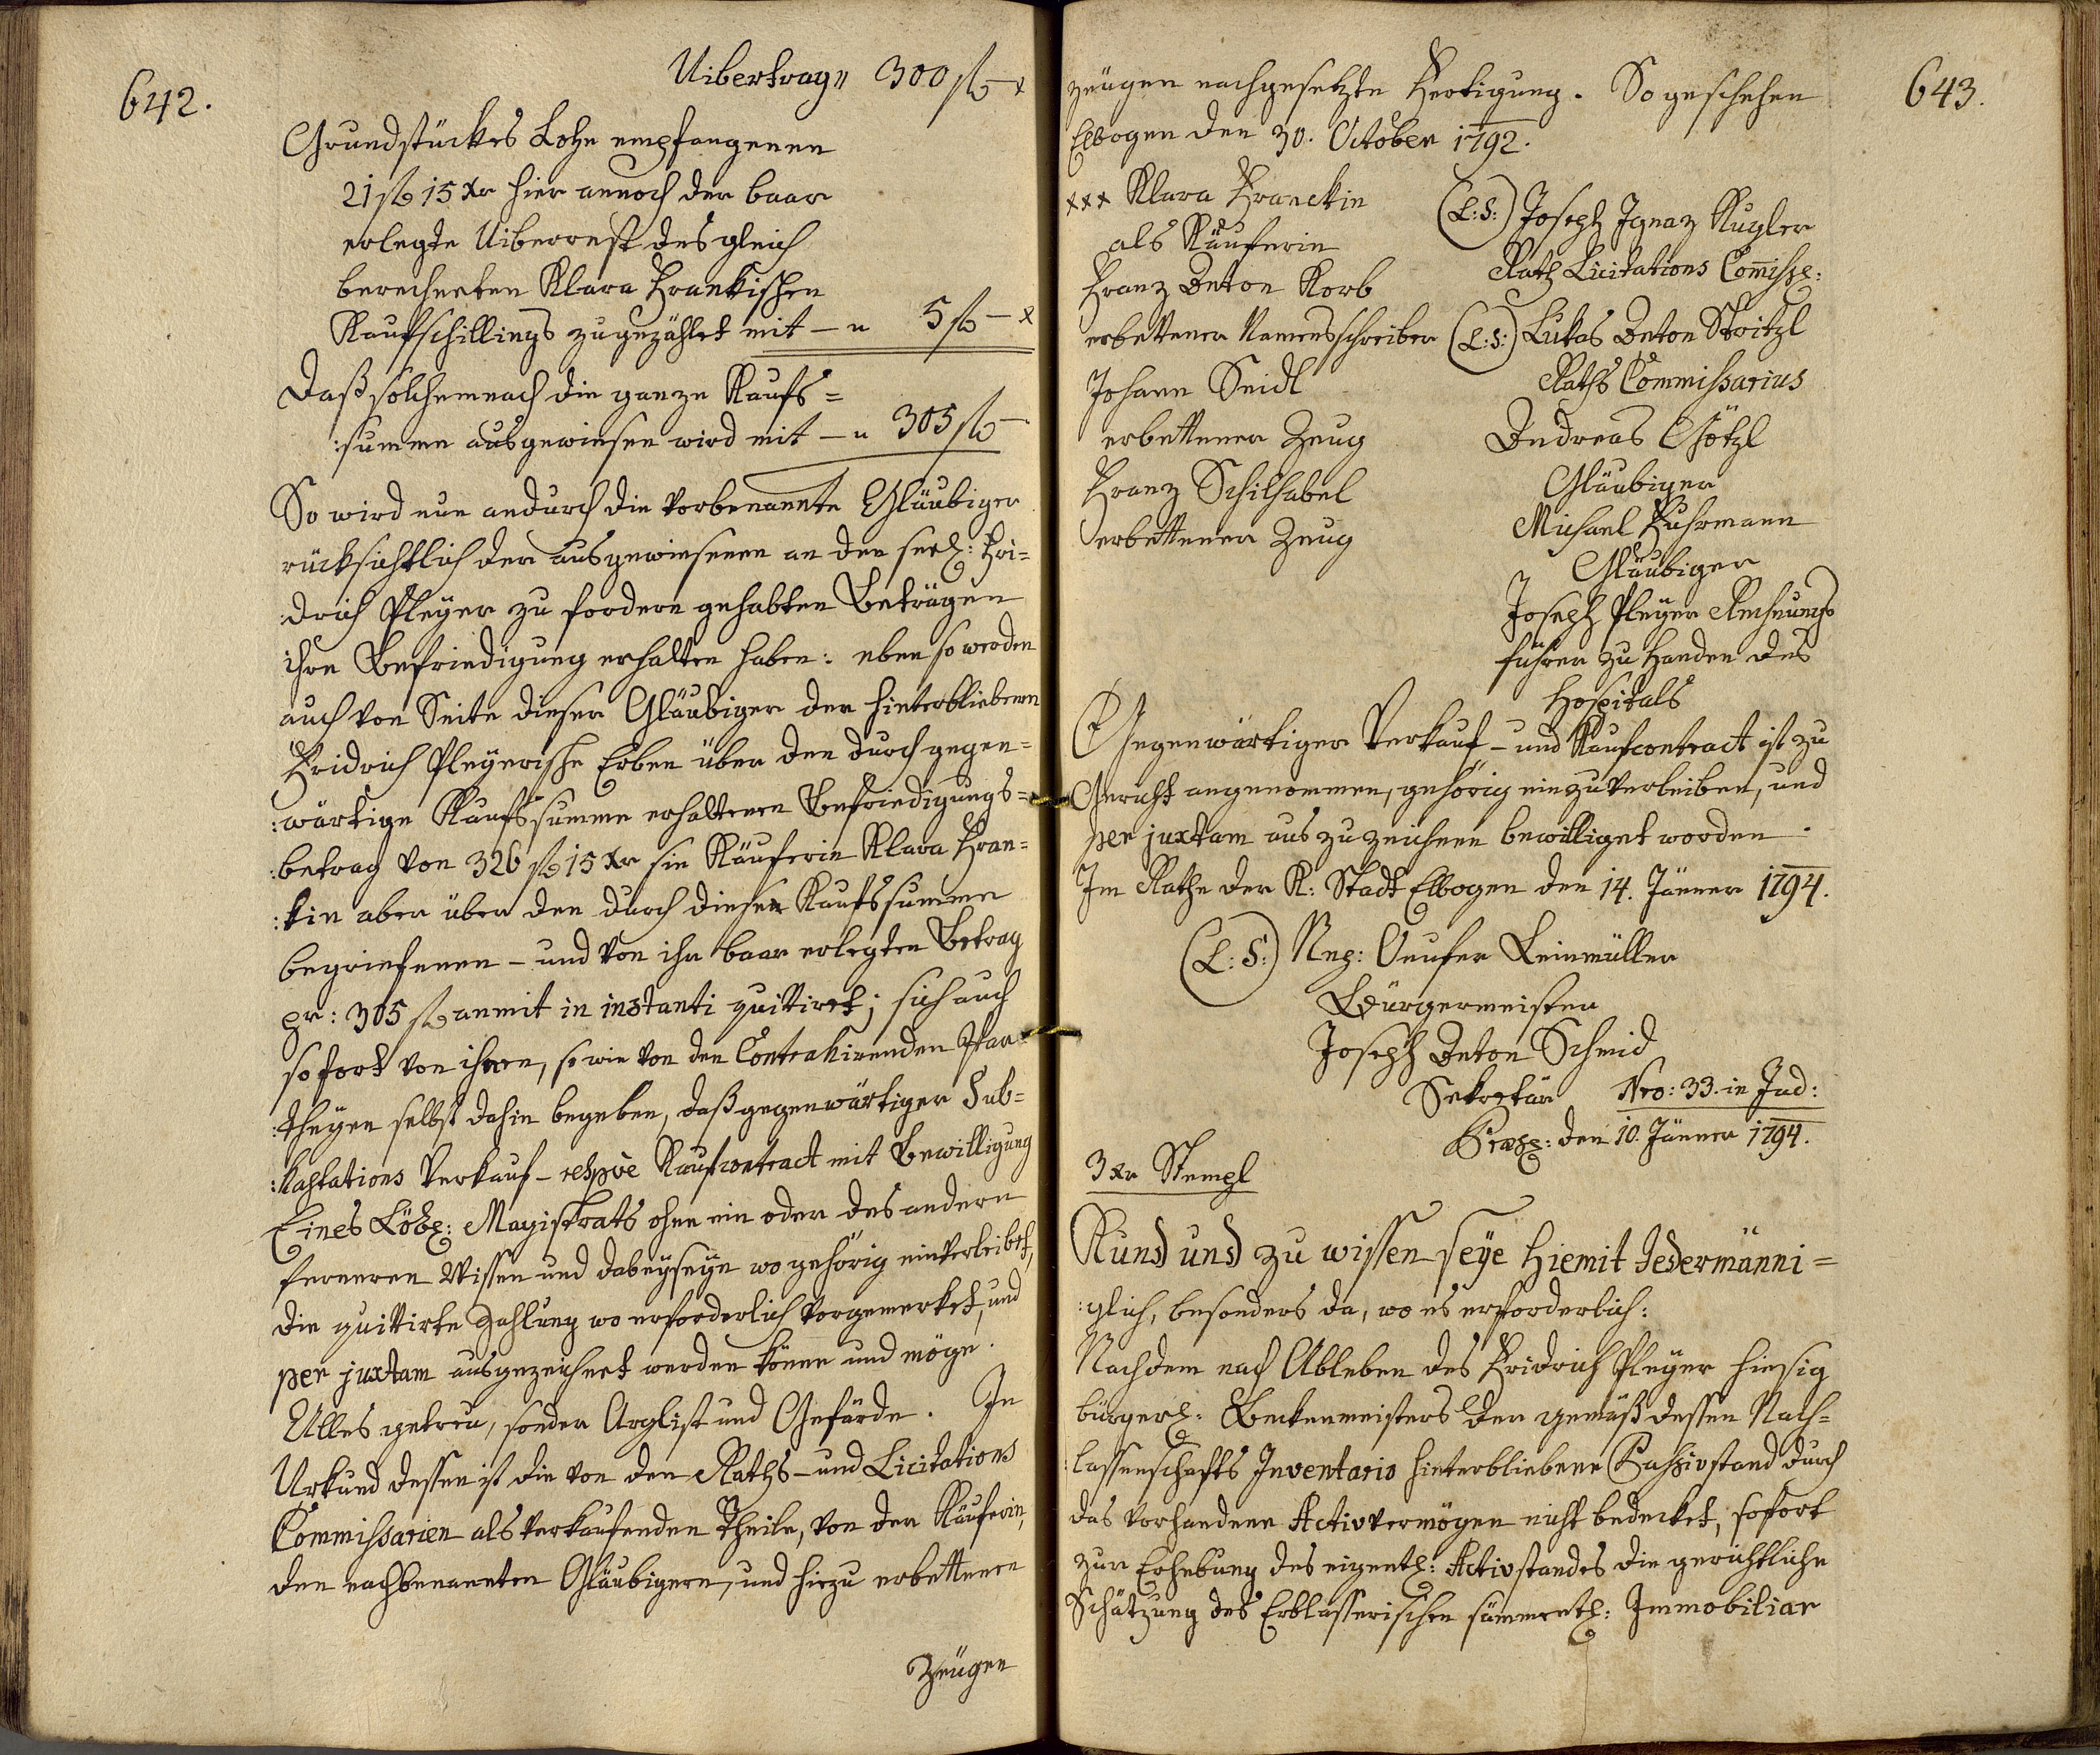 642.
Uibertrag„ 300 fl – x
Grundstückes Lohn empfangenen
21 fl 15 xr hier annoch der baar
erlegte Uiberrest des gleich
berechneten Klara Frankischen
Kaufschillings zugezählet mit – „ 5 fl – x
Daß solchemnach die ganze Kaufs=
:summe ausgewiesen wird mit – „ 305 fl –
So wird nun andurch die vorbenannte Gläubiger
rücksichtlich der ausgewiesenen an den seel: Fri=
:drich Pleÿer zu fordern gehabten Beträgen
ihre Befriedigung erhalten haben: eben so werden
auch von Seite dieser Gläubiger der hinterbliebenen
Fridrich Pleÿerische Erben über den durch gegen=
:wärtige Kaufssumme erhaltenen Befriedigungs=
:betrag von 326 fl 15 xr sie Käuferin Klara Fran=
:kin aber über den durch diese Kaufssumme
begriefenen – und von ihr baar erlegten Betrag
pr: 305 fl anmit in instanti quittiret; sich auch
sofort von ihnen, so wie von den Contrahirenden Par=
:theÿen selbst dahin begeben, daß gegenwärtiger Sub=
:hastations Verkauf – respve Kaufcontract mit Bewilligung
Eines Löbl: Magistrats ohne ein oder des andern
ferneren Wissen und dabeÿseÿn wo gehörig einverleibet,
die quittirte Zahlung wo erforderlich vorgemerket, und
per juxtam ausgezeichnet werden könne und möge.
Alles getreu, sonder Arglist und Gefärde. In
Urkund dessen ist die von den Raths – und Licitations
Commissarien als verkaufenden Theile, von der Käuferin,
den nachbenannten Gläubigern, und hiezu erbettenen
Zeügen
643.
zeügen nachgesetzte Fertigung. So geschehen
Elbogen den 30. October 1792.
xxx Klara Franckin
als Käuferin
Franz Anton Korb
erbettener Namensschreiber
Johann Seidl
erbettener Zeug
Franz Schilhabel
erbettener Zeug
(L:S:) Joseph Ignaz Kugler
Rath Licitations Com̄iss:
(L:S:) Lukas Anton Stoitzl
Raths Commissarius
Andreas Götzl
Gläubiger
Michael Fuhrmann
Gläubiger
Joseph Pleÿer Rechnungs
führer zu Handen des
Hospitals
Gegenwärtiger Verkauf – und Kaufcontract ist zu
Gericht angenommen, gehörig einzuverleiben, und
per juxtam auszuzeichnen bewilliget worden.
Im Rathe der K: Stadt Elbogen den 14. Jänner 1794.
(L:S:) Nep: Onufer Leinmüller
Bürgermeister
Joseph Anton Schmid
Sekretär Nro: 33. in Jud:
Præs: den 10. Jänner 1794.
3 xr Stempl
Kund und zu wissen seÿe hiemit Jedermänni=
:glich, besonders da, wo es erforderlich:
Nachdem nach Ableben des Fridrich Pleÿer hiesig
bürgerl: Beckenmeisters der gemäß dessen Nach=
:lassenschafts Inventario hinterbliebene Passivstand durch
das vorhandene Activvermögen nicht bedecket, sofort
zur Erhebung des eigentl: Activstandes die gerichtliche
Schätzung des Erblasserischen sämmentl: Immobiliar